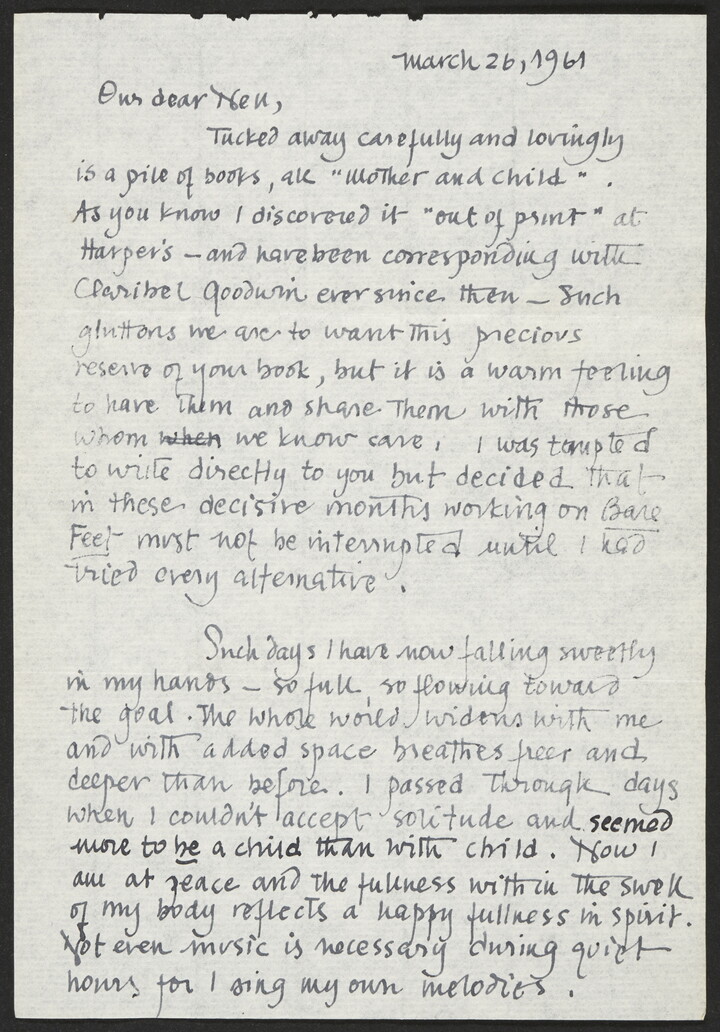 March 26, 1961
Our dear Nell,
Tucked away carefully and lovingly
is a pile of books, all "Mother and Child".
As you know I discovered it "out of print" at
Harper's – and have been corresponding with
Claribel Goodwin ever since then – Such
gluttons we are to want this precious
reserve of your book, but it is a warm feeling
to have them and share them with those
whom when we know care. I was tempted
to write directly to you but decided that
in these decisive months working on Bare
Feet must not be interrupted until I had
tried every alternative.
Such days I have now falling sweetly
in my hands – so full, so flowing toward
the goal. The whole world widens with me
and with added space breathes freer and
deeper than before. I passed through days
when I couldn't accept solitude and seemed
more to be a child than with child. Now I
am at peace and the fullness within the swell
of my body reflects a happy fullness in spirit.
Not even music is necessary during quiet
hours for I sing my own melodies.